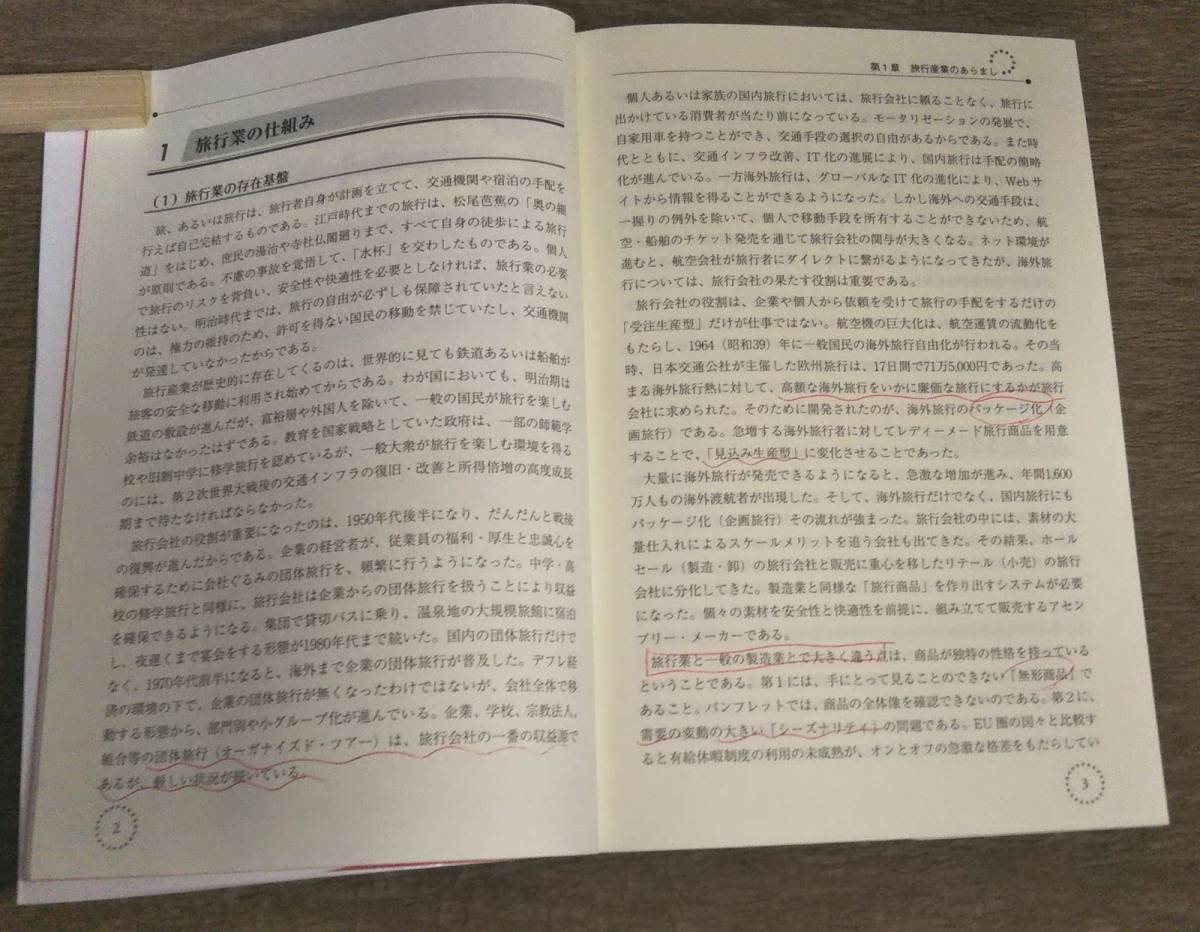 1 旅行業の仕組み
(1) 旅行業の存在基盤
旅、あるいは旅行は、旅行者自身が計画を立てて、交通機関や宿泊の手配を
行えば自己完結するものである。江戸時代までの旅行は、松尾芭蕉の「奥の細
道」をはじめ、庶民の湯治や寺社仏閣廻りまで、すべて自身の徒歩による旅行
が原則である。不慮の事故を覚悟して、「水杯」を交わしたものである。個人
で旅行のリスクを背負い、安全性や快適性を必要としなければ、旅行業の必要
性はない。明治時代までは、旅行の自由が必ずしも保障されていたと言えない
のは、権力の維持のため、許可を得ない国民の移動を禁じていたし、交通機関
が発達していなかったからである。
旅行産業が歴史的に存在してくるのは、世界的に見ても鉄道あるいは船舶が
旅客の安全な移動に利用され始めてからである。わが国においても、明治期は
鉄道の敷設が進んだが、富裕層や外国人を除いて、一般の国民が旅行を楽しむ
余裕はなかったはずである。教育を国家戦略としていた政府は、一部の師範学
校や旧制中学に修学旅行を認めているが、一般大衆が旅行を楽しむ環境を得る
のには、第2次世界大戦後の交通インフラの復旧・改善と所得倍増の高度成長
期まで待たなければならなかった。
旅行会社の役割が重要になったのは、1950年代後半になり、だんだんと戦後
の復興が進んだからである。企業の経営者が、従業員の福利・厚生と忠誠心を
確保するために会社ぐるみの団体旅行を、頻繁に行うようになった。中学・高
校の修学旅行と同様に、旅行会社は企業からの団体旅行を扱うことにより収益
を確保できるようになる。集団で貸切バスに乗り、温泉地の大規模旅館に宿泊
し、夜遅くまで宴会をする形態が1980年代まで続いた。国内の団体旅行だけで
なく、1970年代前半になると、海外まで企業の団体旅行が普及した。デフレ経
済の環境の下で、企業の団体旅行が無くなったわけではないが、会社全体で移
動する形態から、部門別や小グループ化が進んでいる。企業、学校、宗教法人、
組合等の団体旅行（オーガナイズド・ツアー）は、旅行会社の一番の収益源で
あるが、厳しい状況が続いている。
2
第1章 旅行産業のあらまし
個人あるいは家族の国内旅行においては、旅行会社に頼ることなく、旅行に
出かけている消費者が当たり前になっている。モータリゼーションの発展で、
自家用車を持つことができ、交通手段の選択の自由があるからである。また時
代とともに、交通インフラ改善、IT化の進展により、国内旅行は手配の簡略
化が進んでいる。一方海外旅行は、グローバルなIT化の進化により、Webサ
イトから情報を得ることができるようになった。しかし海外への交通手段は、
一握りの例外を除いて、個人で移動手段を所有することができないため、航
空・船舶のチケット発売を通じて旅行会社の関与が大きくなる。ネット環境が
進むと、航空会社が旅行者にダイレクトに繋がるようになってきたが、海外旅
行については、旅行会社の果たす役割は重要である。
旅行会社の役割は、企業や個人から依頼を受けて旅行の手配をするだけの
「受注生産型」だけが仕事ではない。航空機の巨大化は、航空運賃の流動化を
もたらし、1964（昭和39）年に一般国民の海外旅行自由化が行われる。その当
時、日本交通公社が主催した欧州旅行は、17日間で71万5,000円であった。高
まる海外旅行熱に対して、高額な海外旅行をいかに廉価な旅行にするかが旅行
会社に求められた。そのために開発されたのが、海外旅行のパッケージ化（企
画旅行）である。急増する海外旅行者に対してレディーメード旅行商品を用意
することで、「見込み生産型」に変化させることであった。
大量に海外旅行が発売できるようになると、急激な増加が進み、年間1,600
万人もの海外渡航者が出現した。そして、海外旅行だけでなく、国内旅行にも
パッケージ化（企画旅行）その流れが強まった。旅行会社の中には、素材の大
量仕入れによるスケールメリットを追う会社も出てきた。その結果、ホール
セール（製造・卸）の旅行会社と販売に重心を移したリテール（小売）の旅行
会社に分化してきた。製造業と同様な「旅行商品」を作り出すシステムが必要
になった。個々の素材を安全性と快適性を前提に、組み立てて販売するアセン
ブリー・メーカーである。
旅行業と一般の製造業とで大きく違う点は、商品が独特の性格を持っている
ということである。第1には、手にとって見ることのできない「無形商品」で
あること。パンフレットでは、商品の全体像を確認できないのである。第2に、
需要の変動の大きい「シーズナリティ」の問題である。EU圏の国々と比較す
ると有給休暇制度の利用の未成熟が、オンとオフの急激な格差をもたらしてい
3